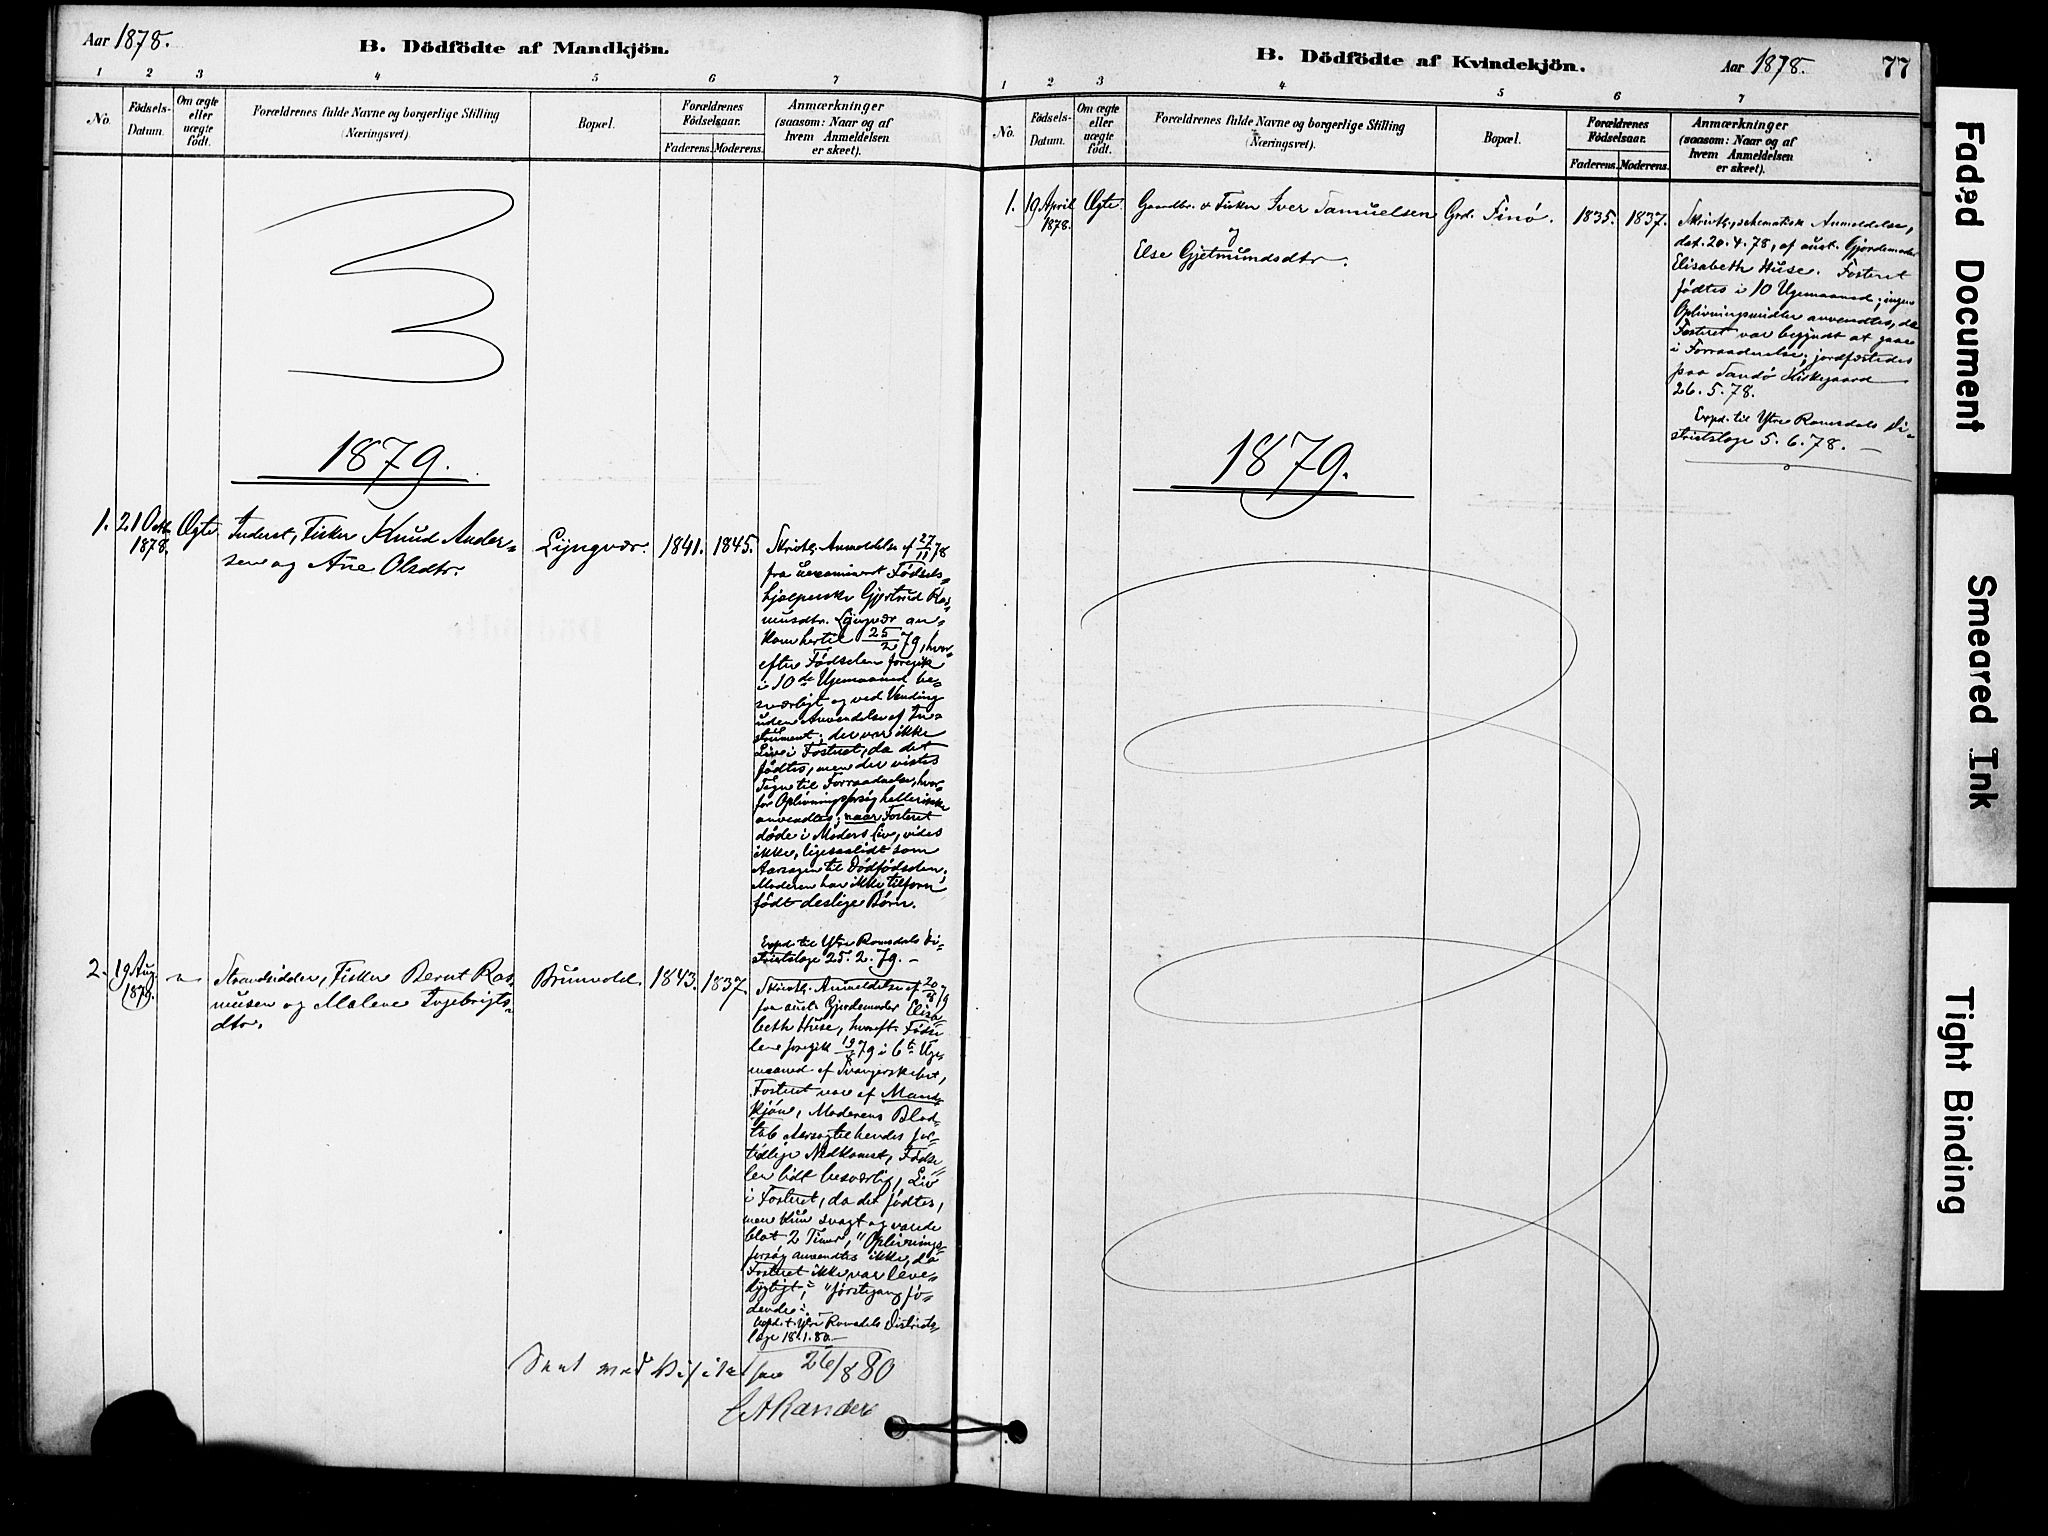 Aar 1878.
B. Dödfödte af Mandkjön.
1 2 3 4 5 6 7
No.
Födsels-
Datum.
Om ægte
eller
uægte
födt.
Forældrenes fulde Navne og borgerlige Stilling
(Næringsvei).
Bopæl.
Forældrenes
Födselsaar.
Faderens. Moderens.
Anmærkninger
(saasom: Naar og af
hvem Anmeldelsen
er skeet).
1879.
1. 21 Octbr. 1878. Ægte.
Inderst, Fisker Knud Ander-
sen og Ane Olsdtr.
Lyngvær. 1841. 1845.
Skriftl. Anmeldelse af 27/11 78
fra uexamineret Fødsels-
hjælperske Gjertrud Ras-
musdtr. Lyngvær an-
kom hertil 25/2 79, hvor-
efter Fødselen foregik
i 10de Ugemaaned be-
sværligt og ved Vending
uden Anvendelse af In-
strument; der var ikke
Liv i Fosteret, da det
fødtes, men der vistes
Tegn til Forraadnelse, hvor-
for Oplivningsforsøg heller ikke
anvendtes; naar Fosteret
døde i Moders Liv, vides
ikke, ligesaalidt som
Aarsagen til Dødfødselen;
Moderen har ikke tilforn
født deslige Børn.
Exped. til Ytre Romsdals Di-
strictslæge 25.2.79. —
2. 19 Aug. 1879. "
Strandsidder, Fisker Bernt Ras-
musen og Malene Ingebrigts-
dtr.
Brunvold. 1843. 1837.
Skriftl. Anmeldelse af 20/8 79
fra aust. Gjordemoder Elisa-
beth Huse, hvoreft. Fødse-
len foregik 19/8 79 i 6te Uge-
maaned af Svangerskabet,
Fosteret var af Mand-
kjøn, Moderens Blod-
tab Aarsag til hendes for-
tidlige Nedkomst, Fødse-
len lidt besværlig, Liv
i Fosteret, da det fødtes,
men kun svagt og varede
blot 2 Timer, "Oplivnings-
forsøg anvendtes ikke, da
Fosteret ikke var leve-
dygtigt", "førstegang fø-
dende".
Exped. t. Ytre Romsdals Districts-
læge 18.1.80. —
Seet ved Visitatsen 26/8 80
B. Dödfödte af Kvindekjön.
Aar 1878.
77
1 2 3 4 5 6 7
No.
Födsels-
Datum.
Om ægte
eller
uægte
födt.
Forældrenes fulde Navne og borgerlige Stilling
(Næringsvei).
Bopæl.
Forældrenes
Födselsaar.
Faderens. Moderens.
Anmærkninger
(saasom: Naar og af
hvem Anmeldelsen
er skeet).
1. 19 April 1878. Ægte.
Gaardbr. & Fisker Iver Samuelsen
og
Else Gjetmundsdtr.
Grd. Finø. 1835. 1837.
Skriftl., schematisk Anmeldelse,
dat. 20.4.78, af aust. Gjordemoder
Elisabeth Huse. Fosteret
fødtes i 10 Ugemaaned; ingen
Oplivningsmidler anvendtes, da
Fosteret var begyndt at gaae
i Forraadnelse; jordfæstedes
paa Sandø Kirkegaard
26.5.78.
Exped. til Ytre Romsdals Di-
strictslæge 5.6.78. —
1879.
Faded Document
Smeared Ink
Tight Binding